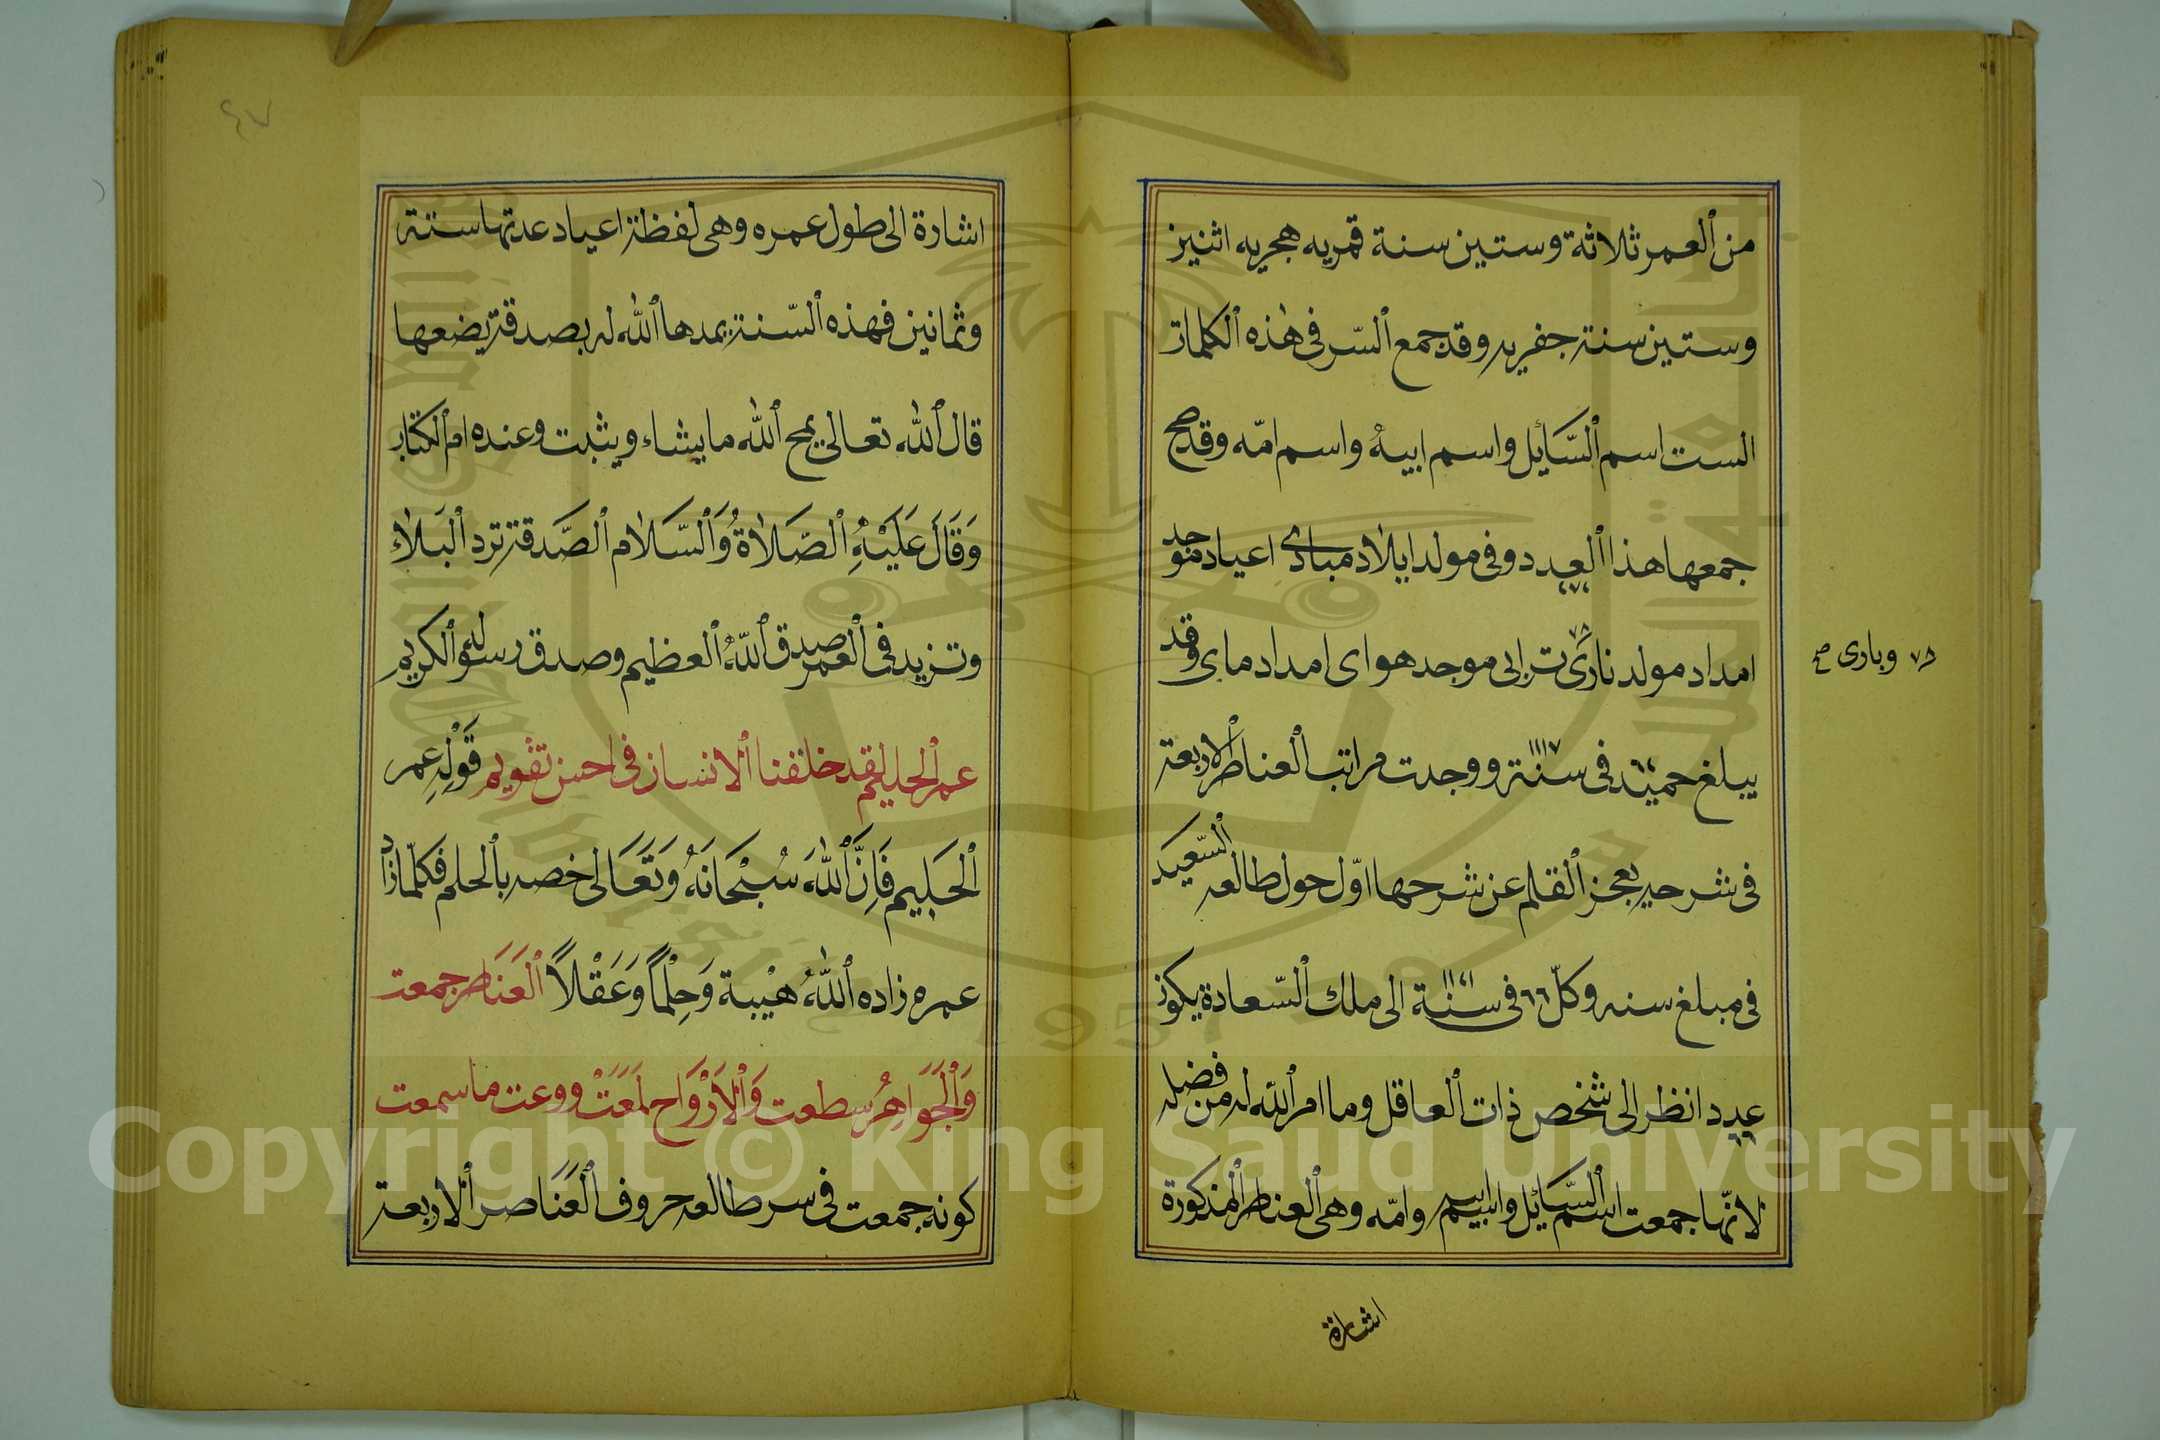 من العمر ثلاثة وستين سنة قمريه هجريه اثنين
وستين سنة جفريه وقد جمع السّر فى هذه الكلمات
الست اسم السّائل واسم ابيهٔ واسم امّه وقد صح
جمعها هذا العدد وفى مولد ايلاد مبادى اعياد موجد
امداد مولد نارىٔ ترابى موجد هواى امداد ماى وقد
٧٨ وبارى صح
يبلغ حميد فى سنة ١١١٧ ووجدت مراتب العناصر الاربعة
فى شرحيه يعجز القلم عن شرحها اوّل حول طالعه السّعيد
فى مبلغ سنه وكلّ ٦٦ فى سنة ١١٧١ الى ملك السّعادة يكون
عدد انظر الى شخص ذات العاقل وما امر اللّه له من فضله
لانّها جمعت اسم السّائل وابيه وامّه وهى العناصر المذكورة
اشارة
٤٧
اشارة الى طول عمره وهى لفظة اعياد عدتها ستة
وثمانين فهذه السّنة يمدها اللّه له بصدقة يضعها
قال اللّه تعالى يمح اللّه ما يشاء ويثبت وعنده ام الكتاب
وَقَالَ عَلَيْهِ الصَّلَاةُ وَالسَّلَام الصَّدقة ترد البَلاء
وتزيد فى العمر صدق اللّهُ العظيم وصدق رسوله الكريم
عمر الحليم لقد خلقنا الانسان فى احسن تقويم قَوْلِهِ عمر
الحَليم فَاِنَّ اللّهَ سُبْحَانَهُ وَتَعَالى خصه بالحلم فكلّما زاد
عمره زاده اللّهُ هَيْبة وَحِلْمًا وَعَقْلاً العَنَاصر جمعت
وَالْجَوَاهِرُ سطعت وَالاَرْوَاح لمَعَتْ ووعت ما سمعت
كونه جمعت فى سر طالعه حروف العَنَاصر الاربعة